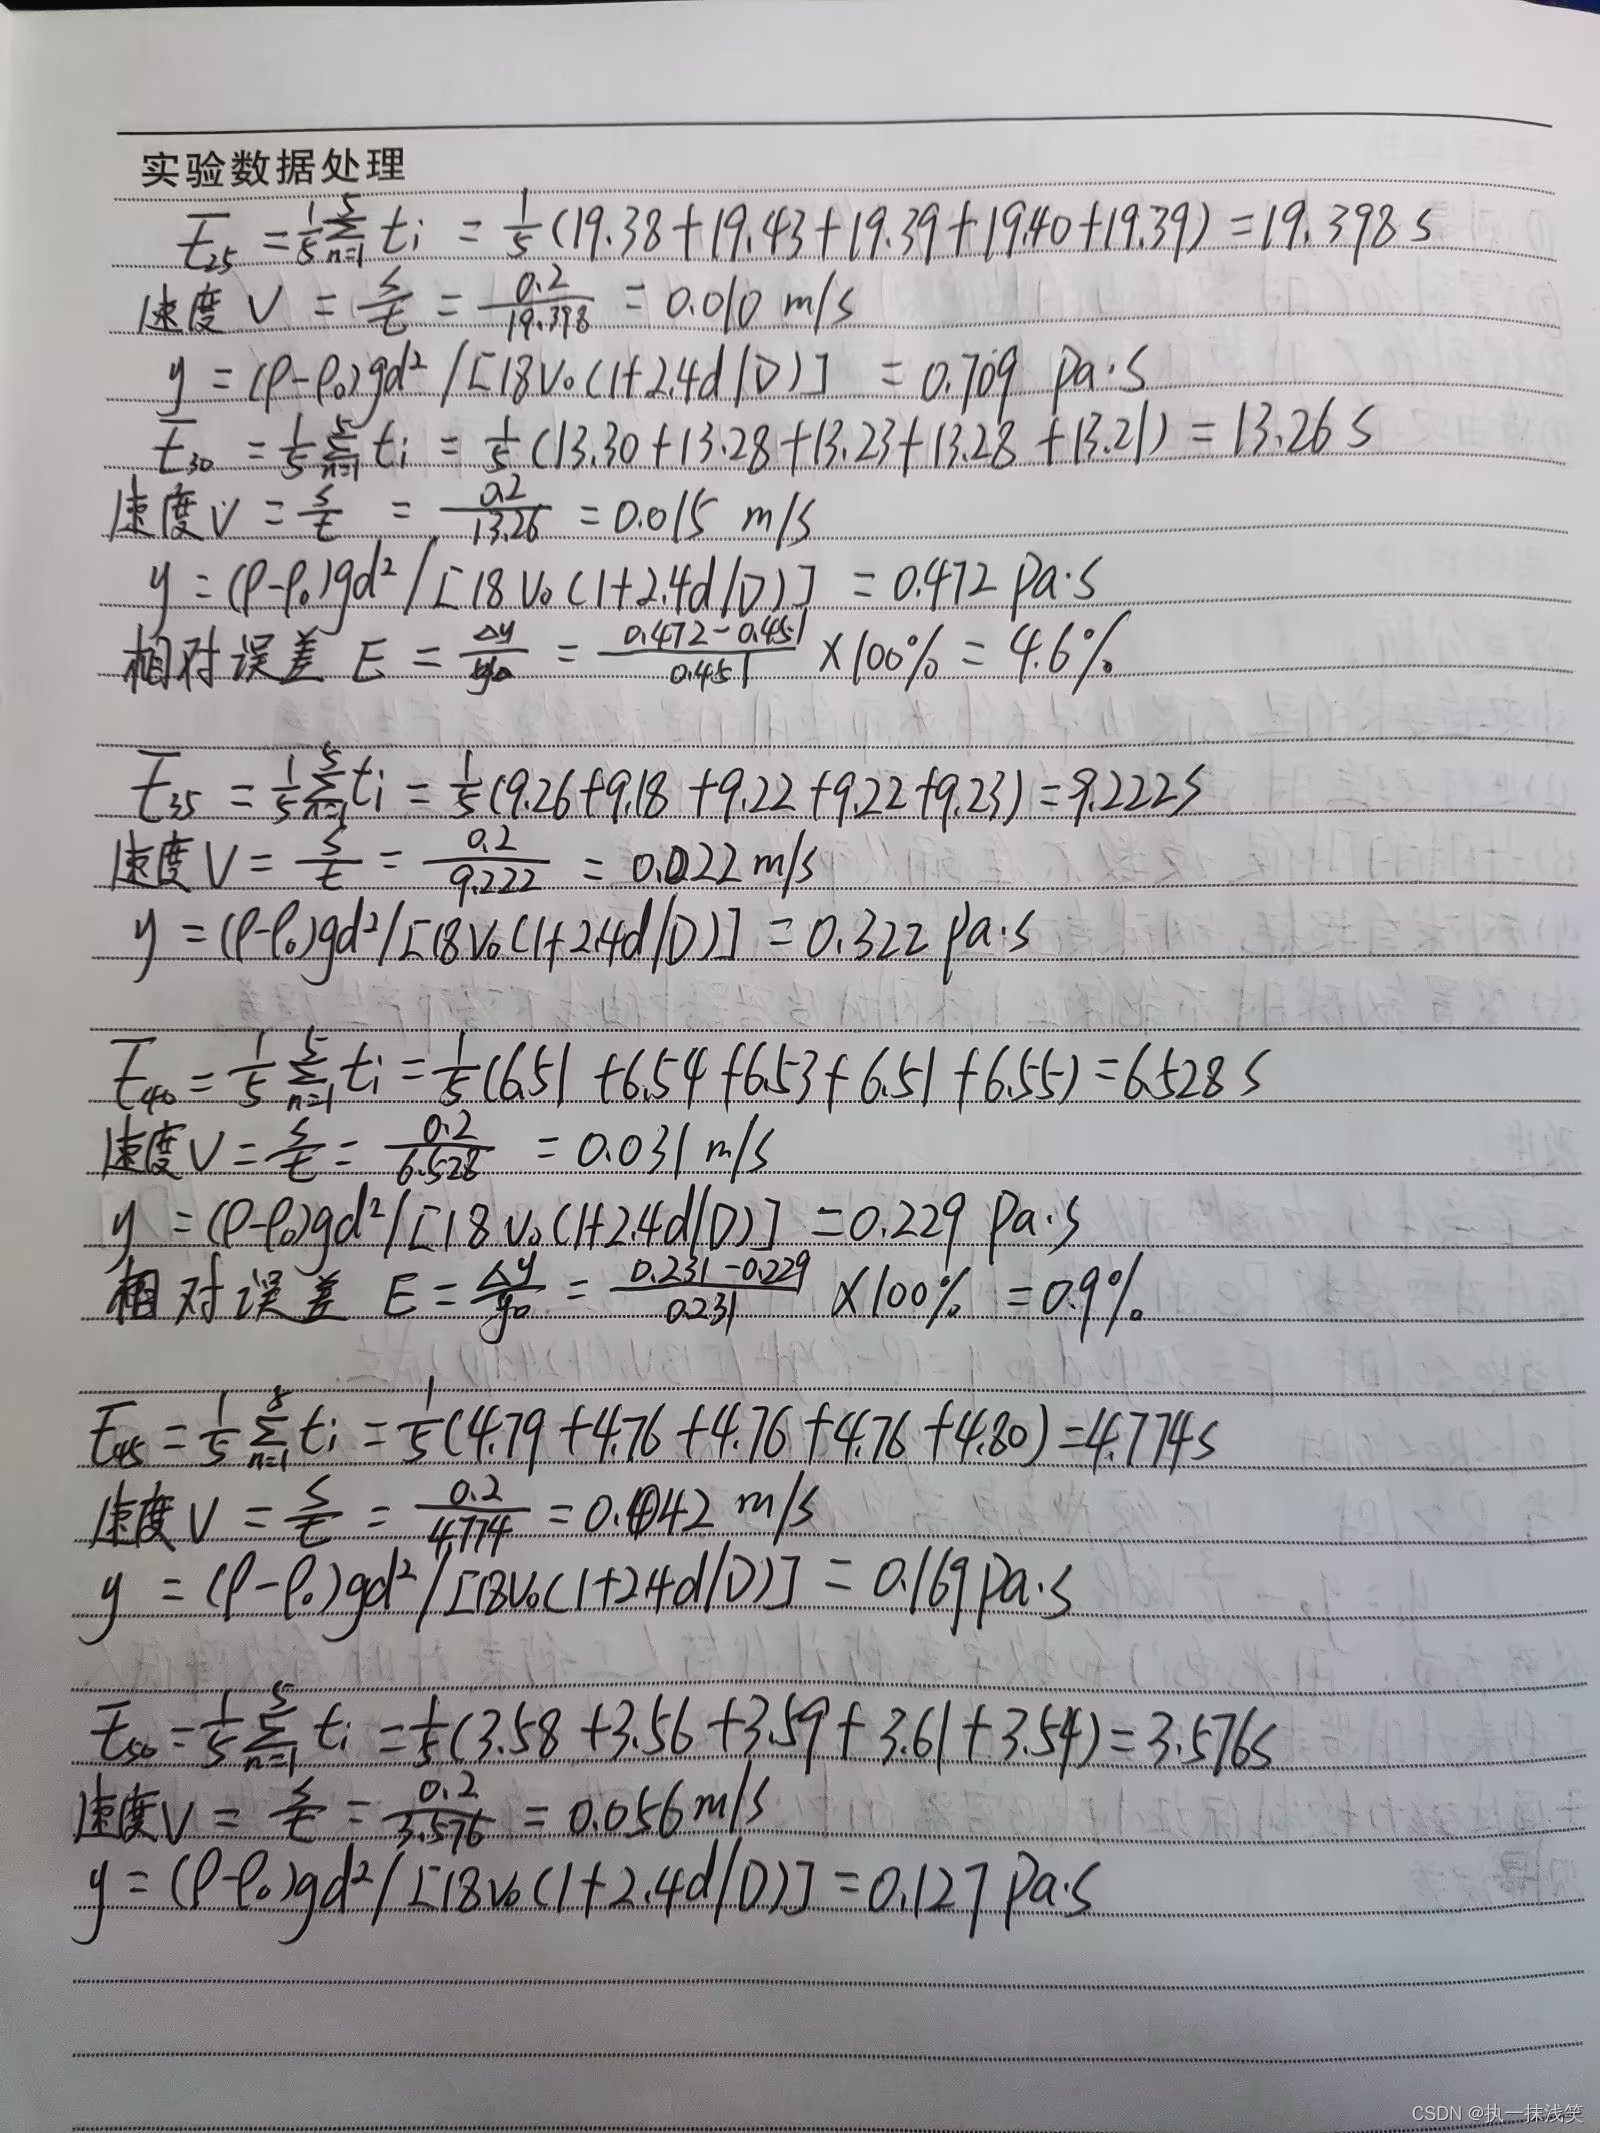 实验数据处理
t̄₂₅ = 1/5 Σ(n=1→5) ti = 1/5 (19.38+19.43+19.39+19.40+19.39) = 19.398 s
速度 V = s/t = 0.2/19.398 = 0.010 m/s
y = (ρ-ρ₀)gd²/[18V₀(1+2.4d/D)] = 0.709 Pa·s
t̄₃₀ = 1/5 Σ(n=1→5) ti = 1/5 (13.30+13.28+13.23+13.28+13.21) = 13.26 s
速度 V = s/t = 0.2/13.26 = 0.015 m/s
y = (ρ-ρ₀)gd²/[18V₀(1+2.4d/D)] = 0.472 Pa·s
相对误差 E = Δy/y₀ = (0.472-0.451)/0.451 ×100% = 4.6%
t̄₃₅ = 1/5 Σ(n=1→5) ti = 1/5 (9.26+9.18+9.22+9.22+9.23) = 9.222 s
速度 V = s/t = 0.2/9.222 = 0.022 m/s
y = (ρ-ρ₀)gd²/[18V₀(1+2.4d/D)] = 0.322 Pa·s
t̄₄₀ = 1/5 Σ(n=1→5) ti = 1/5 (6.51+6.54+6.53+6.51+6.55) = 6.528 s
速度 V = s/t = 0.2/6.528 = 0.031 m/s
y = (ρ-ρ₀)gd²/[18V₀(1+2.4d/D)] = 0.229 Pa·s
相对误差 E = Δy/y₀ = (0.231-0.229)/0.231 ×100% = 0.9%
t̄₄₅ = 1/5 Σ(n=1→5) ti = 1/5 (4.79+4.76+4.76+4.76+4.80) = 4.774 s
速度 V = s/t = 0.2/4.774 = 0.042 m/s
y = (ρ-ρ₀)gd²/[18V₀(1+2.4d/D)] = 0.169 Pa·s
t̄₅₀ = 1/5 Σ(n=1→5) ti = 1/5 (3.58+3.56+3.59+3.61+3.54) = 3.576 s
速度 V = s/t = 0.2/3.576 = 0.056 m/s
y = (ρ-ρ₀)gd²/[18V₀(1+2.4d/D)] = 0.127 Pa·s
CSDN @执一抹浅笑